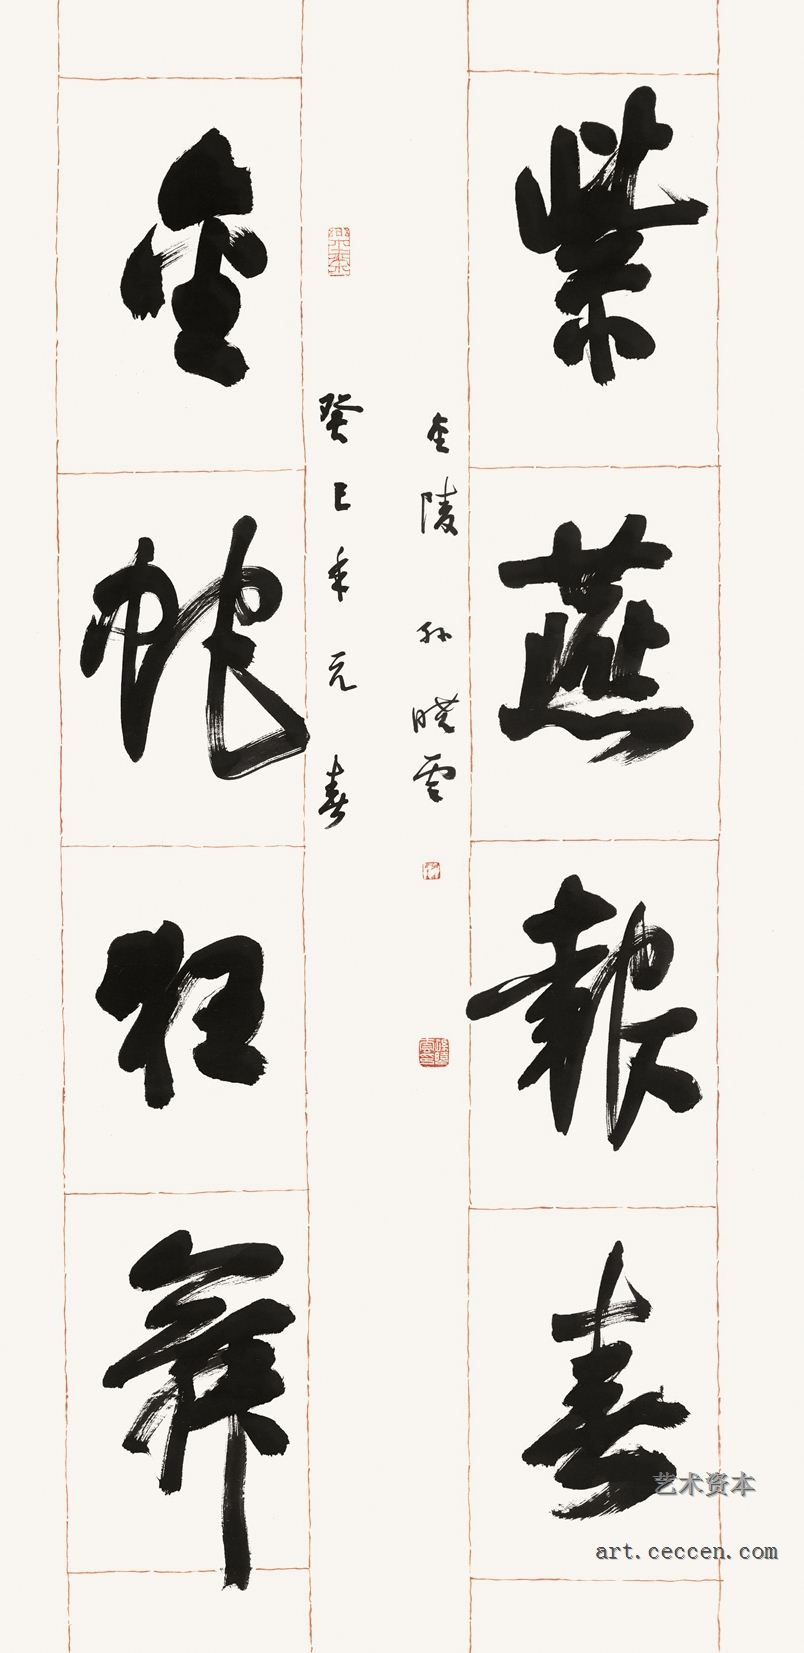 紫燕報春
金陵孫曉雲
癸巳年元春
金蛇狂舞
艺术资本
art.ceccen.com